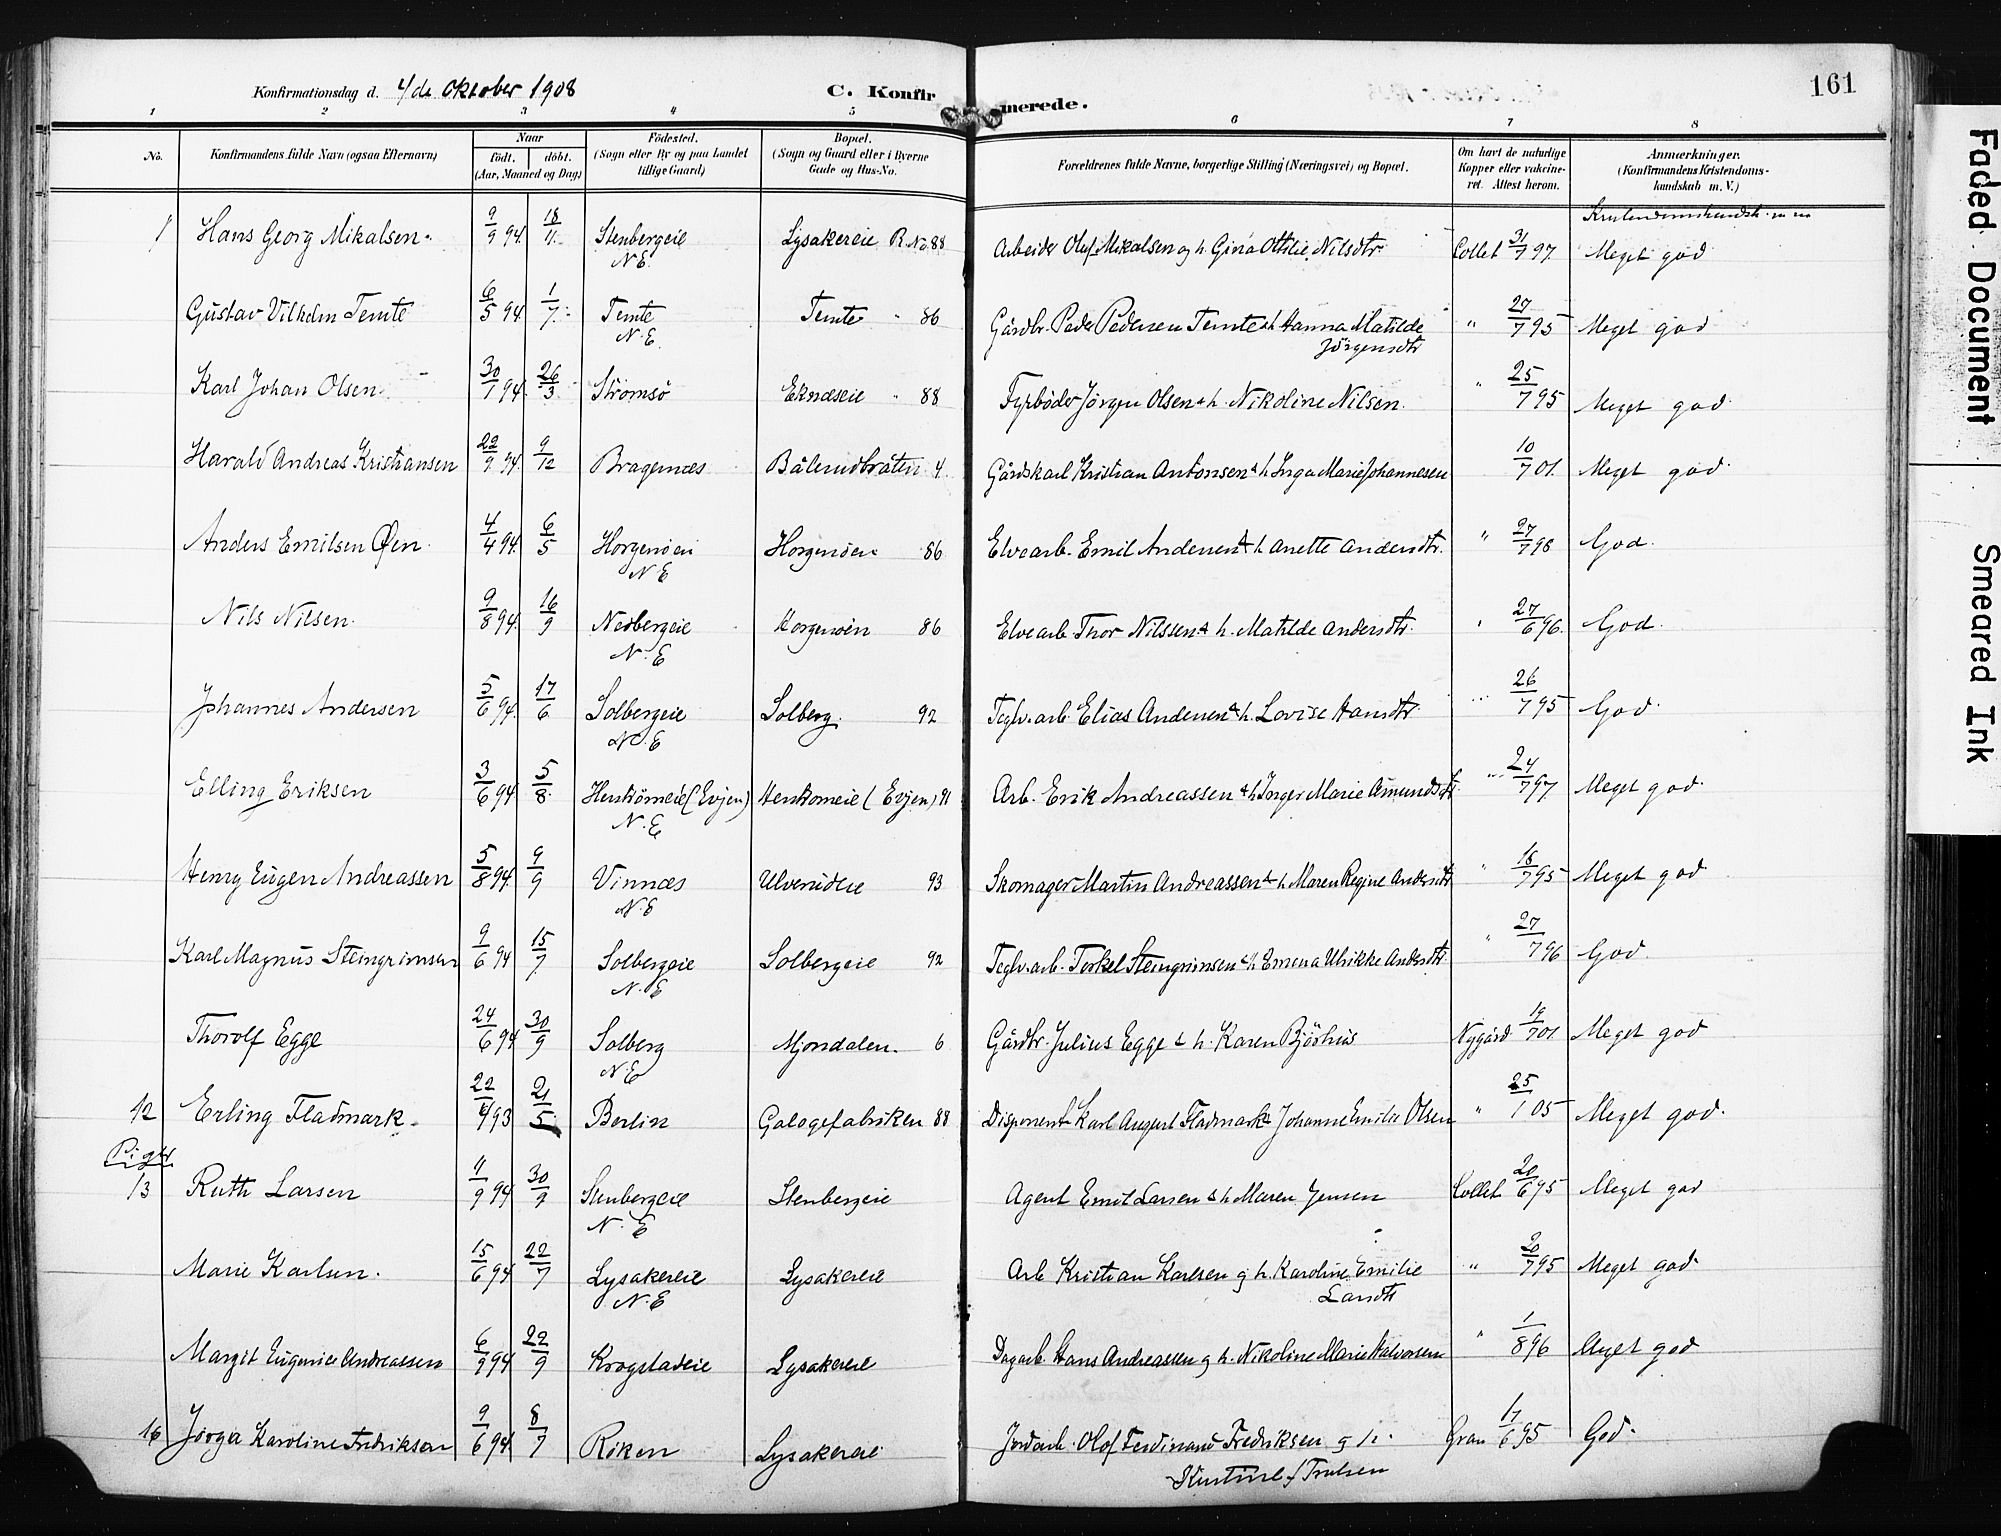 Konfirmationsdag d. 4/de Oktober 1908
C. Konfirmerede.
161
1 2 3 4 5 6 7 8
No.
Konfirmandens fulde Navn (ogsaa Efternavn)
Naar
født. døbt.
(Aar, Maaned og Dag)
Fødested.
(Sogn eller By og paa Landet tillige Gaard)
Bopæl.
(Sogn og Gaard eller i Byerne Gade og Hus-No.
Forældrenes fulde Navne, borgerlige Stilling (Næringsvei) og Bopæl.
Om havt de naturlige Kopper eller vakcineret. Attest herom.
Anmærkninger.
(Konfirmandens Kristendomskundskab m. V.)
1 Hans Georg Mikalsen 9/9 94 18/11 Stenbergeie N.E. Lysakereie R No 88 Arbeider Olaf Mikalsen og h. Gina Ottilie Nilsdtr Collet 31/7 97 Meget god
Gustav Vilhelm Temte 6/5 94 1/7 Temte N.E. Temte " 86 Gårdbr. Peder Pedersen Temte & h Hanna Matilde Jörgensdtr " 27/7 95 Meget god
Karl Johan Olsen 30/1 94 26/3 Strömsö Eknæseie " 88 Fyrböder Jörgen Olsen & h. Nikoline Nilsen " 25/7 95 Meget god
Harald Andreas Kristiansen 22/9 94 9/12 Bragernæs Bålerudbråten 4 Gårdskarl Kristian Antonsen & h Inga Marie Johannesen 10/7 01 Meget god
Anders Emilsen Øen 4/4 94 6/5 Horgenöen N E Horgenöen 86 Elvearb. Emil Andersen & h Anette Andersdtr. " 27/7 98 God
Nils Nilsen 9/8 94 16/9 Nedbergeie N.E Horgenöen 86 Elvearb Thor Nilssen & h. Matilde Andersdtr. " 27/6 96 God
Johannes Andersen 5/6 94 17/6 Solbergeie N.E Solberg 92 Teglv.arb. Elias Andersen & h. Lovise Hansdtr. " 26/7 95 God
Elling Eriksen 3/6 94 5/8 (Evjen) N.E (Evjen) 91 Arb. Erik Andreassen & h Inger Marie Amundsdtr " 24/7 97 Meget god
Henry Eugen Andreassen 5/8 94 9/9 Vinnæs N.E Ulverudeie 93 Skomager Martin Andreassen & h Maren Regine Andersdtr " 18/7 95 Meget god
Karl Magnus Steingrimsen 9/6 94 15/7 Solbergeie N.E Solbergeie 92 Teglv.arb. Torkel Steingrimsen & h Emma Ulrikke Andersdtr " 27/7 96 God
Thorolf Egge 24/6 94 30/9 Solberg N.E Mjöndalen 6 Gårdbr. Julius Egge & h. Karen Björhus Nygård 19/7 01 Meget god
12 Erling Fladmark 22/4 93 21/5 Berlin Galogefabriken 88 Disponent Karl August Fladmark & Johanne Emilie Olsen " 25/1 05 Meget god
Piger
13 Ruth Larsen 11/9 94 30/9 Stenbergeie N.E Stenbergeie Agent Emil Larsen & h Maren Jensen Collet 20/6 95 Meget god
Marie Karlsen. 15/6 94 22/7 Lysakereie N.E Lysakereie Arb Kristian Karlsen g h. Karoline Emilie Larsdtr " 20/7 95 Meget god
Margit Eugenie Andreassen 6/9 94 22/9 Krogstadeie Lysakereie Dagarb. Hans Andreassen g h. Nikoline Marie Halvorsen " 1/8 96 Meget god
16 Karoline Fredriksen 9/6 94 8/7 Röken Lysakereie Jordarb. Olof Ferdinand Fredriksen g h. Trulsen Gran 17/6 95 God
Faded Document
Smeared Ink